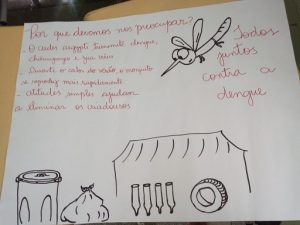 Por que devemos nos preocupar?
- O aedes aegypti transmite dengue,
chikungunya e zika vírus
- Durante o calor do verão, o mosquito
se reproduz mais rapidamente
- atitudes simples ajudam
a eliminar os criadouros
Todos
juntos
contra a
dengue